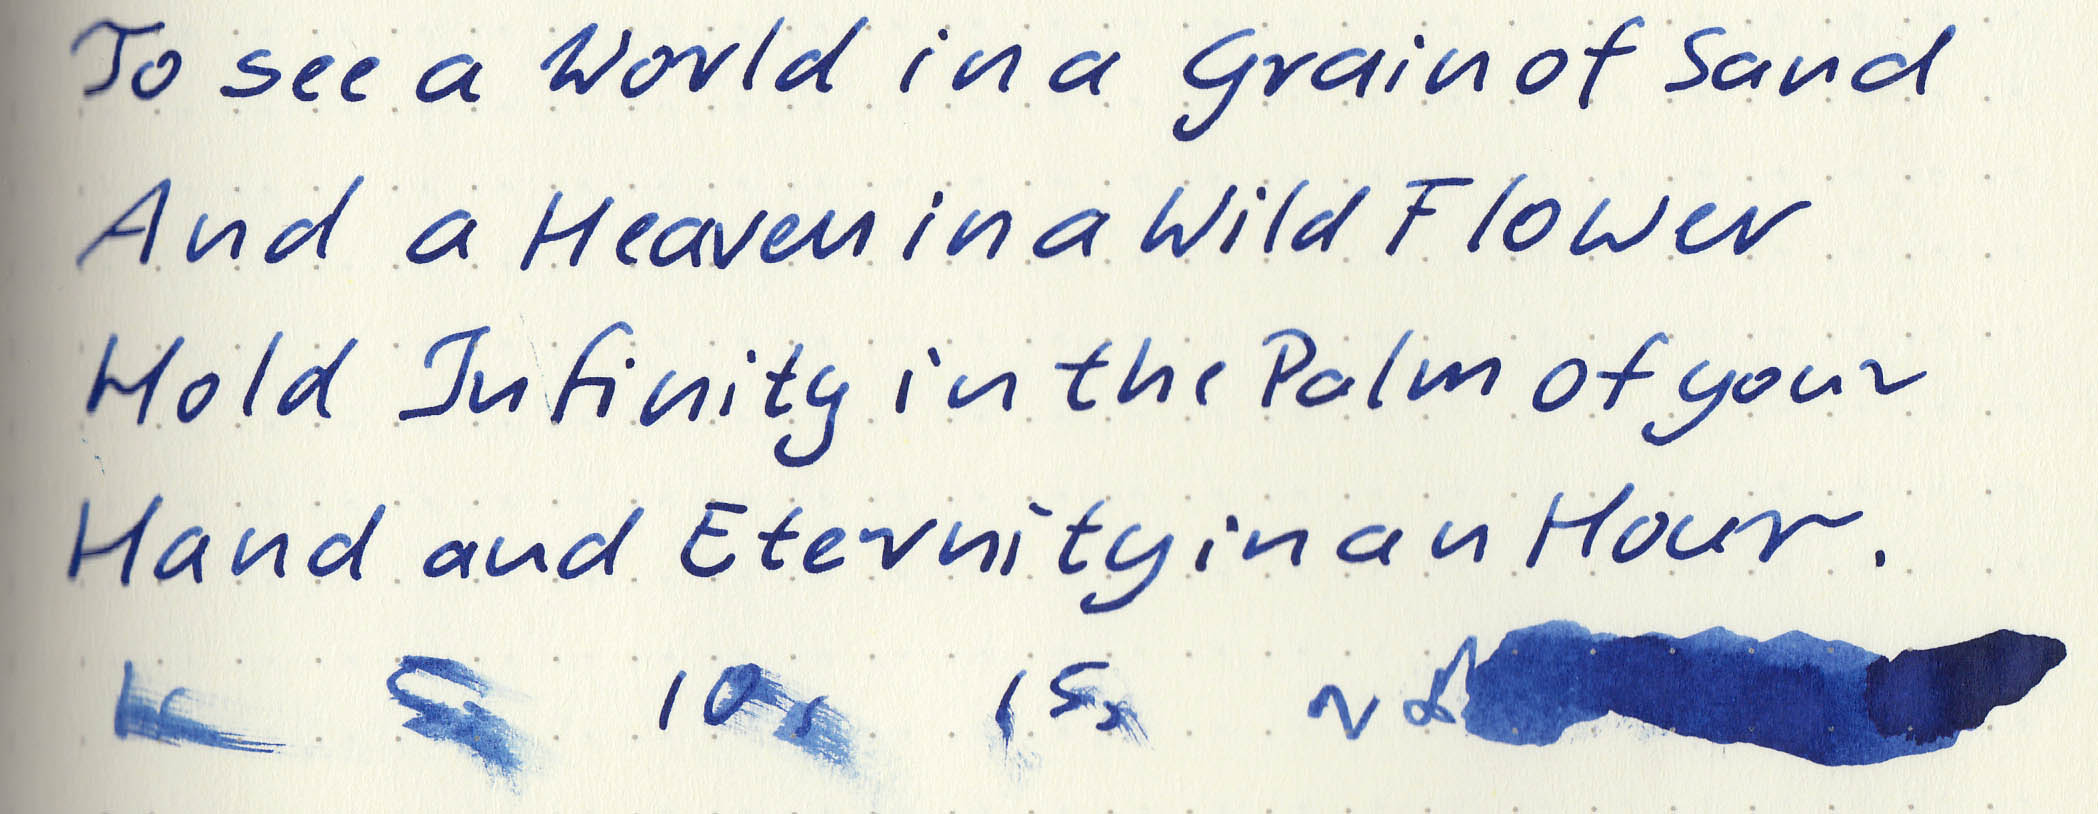 To see a World in a Grain of Sand
And a Heaven in a Wild Flower
Hold Infinity in the Palm of your
Hand and Eternity in an Hour.
10s 15s